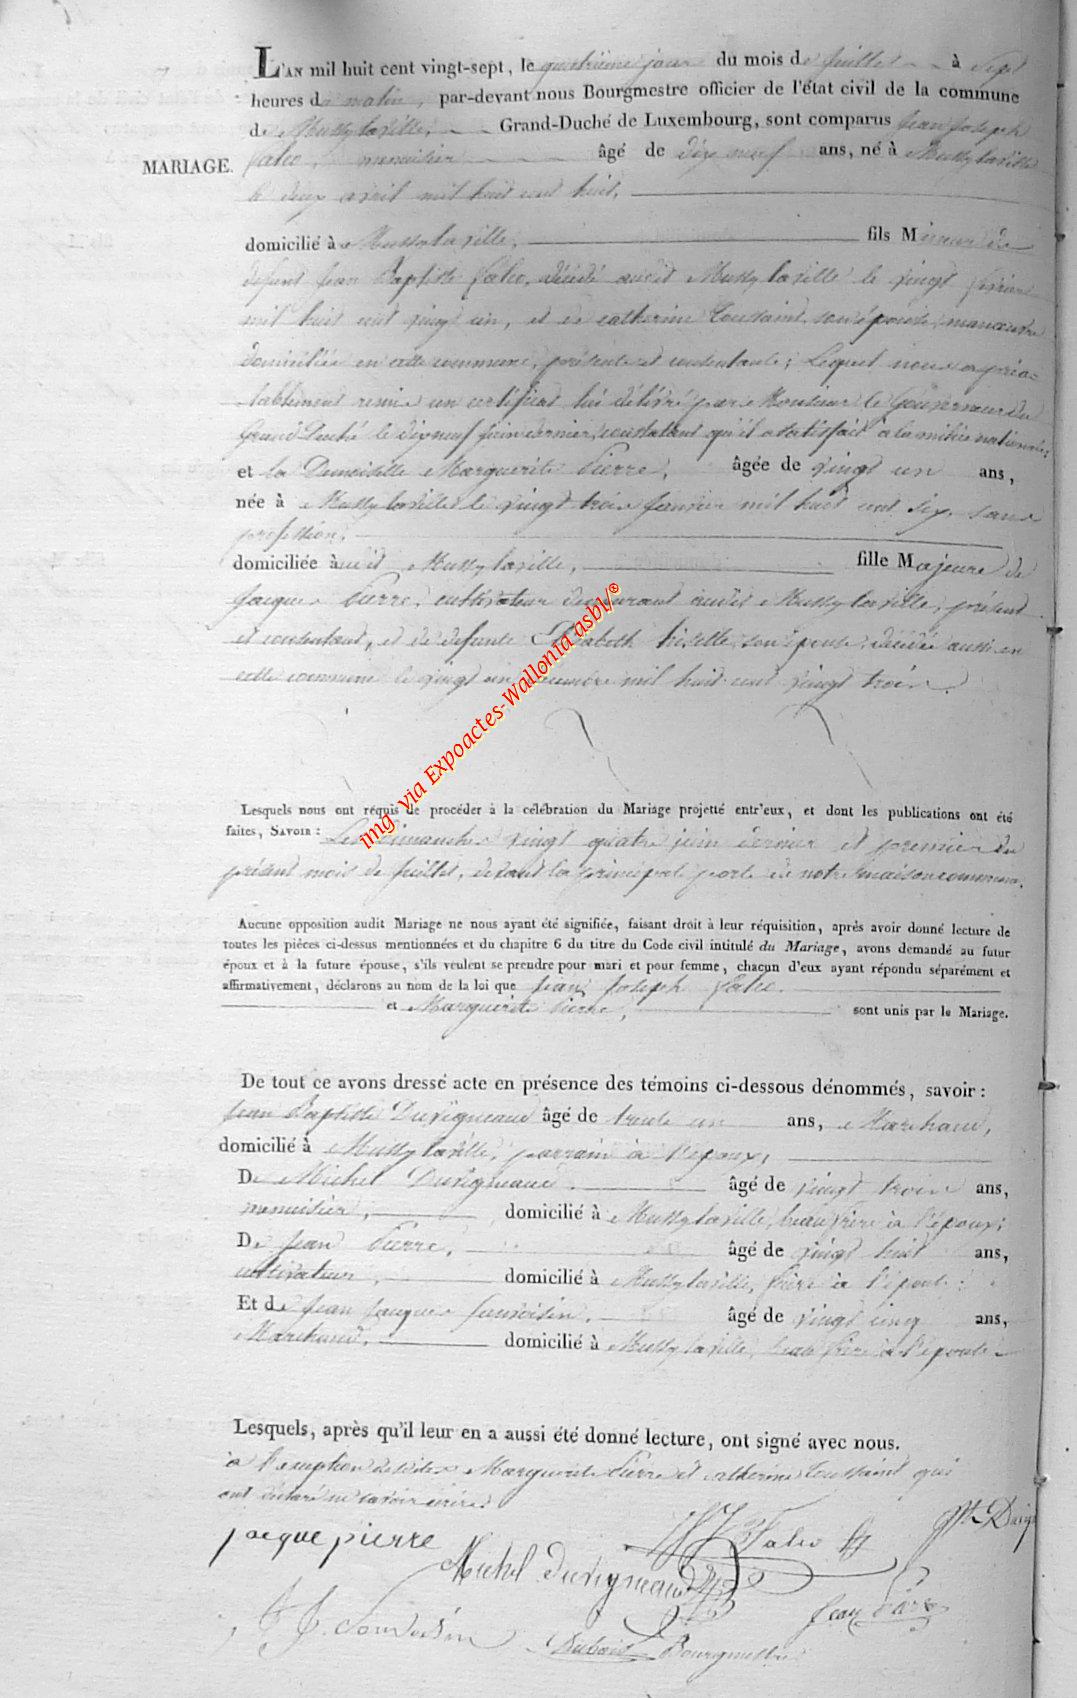 L'AN mil huit cent vingt-sept, le quatrieme jour du mois de Juillet à Sept
heures du matin, par-devant nous Bourgmestre officier de l'état civil de la commune
de Mussy laville, Grand-Duché de Luxembourg, sont comparus Jean Joseph
MARIAGE. Falco, menuisier âgé de dix neuf ans, né à Mussy laville
le deux avril mil huit cent huit,
domicilié à Mussy la ville, fils Mineur de
defunt Jean Baptiste Falco, décédé audit Mussy laville le vingt février
mil huit cent vingt un, et de catherine Toussaint son épouse, manœuvre
domiciliée en cette commune, présente et consentante; Lequel nous a préa-
lablement remis un certificat lui délivré par Monsieur le Gouverneur du
Grand Duché le dixneuf juin dernier, constatant qu'il a satisfait à la milice nationale;
et la Demoiselle Marguerite Pierre, âgée de vingt un ans,
née à Mussy laville le vingt trois Janvier mil huit cent six, sans
profession,
domiciliée audit Mussy laville, fille Majeure de
Jacques Pierre, cultivateur demeurant audit Mussy laville, présent
et consentant, et de defunte Elisabeth son épouse, décédée aussi en
cette commune le vingt un mil huit cent vingt trois.
img via Expoactes-Wallonia asbl/®
Lesquels nous ont requis de procéder à la célébration du Mariage projetté entr'eux, et dont les publications ont été
faites, SAVOIR : Les Dimanches vingt quatre juin dernier et premier du
présent mois de Juillet, devant la principale porte de notre maison commune.
Aucune opposition audit Mariage ne nous ayant été signifiée, faisant droit à leur réquisition, après avoir donné lecture de
toutes les pièces ci-dessus mentionnées et du chapitre 6 du titre du Code civil intitulé du Mariage, avons demandé au futur
époux et à la future épouse, s'ils veulent se prendre pour mari et pour femme, chacun d'eux ayant répondu séparément et
affirmativement, déclarons au nom de la loi que Jean Joseph Falco.
et Marguerite Pierre, sont unis par le Mariage.
De tout ce avons dressé acte en présence des témoins ci-dessous dénommés, savoir :
Jean Baptiste Duvigneaud âgé de trente un ans, Marchand,
domicilié à Mussy laville, parrain à l'époux,
De Michel Duvigneaud. âgé de vingt trois ans,
menuisier, domicilié à Mussy laville, beau frère à l'époux;
De Jean Pierre, âgé de vingt huit ans,
cultivateur, domicilié à Mussy laville, frère à l'épouse;
Et de Jean Jacques âgé de vingt cinq ans,
Marchand, domicilié à Mussy laville, beau frère à l'épouse.
Lesquels, après qu'il leur en a aussi été donné lecture, ont signé avec nous.
à l'exception desdites Marguerite Pierre et catherine Toussaint qui
ont déclaré ne savoir écrire.
jacque pierre
Falco
Michel Duvigneaud
Jean Pierre
Bourgmestre